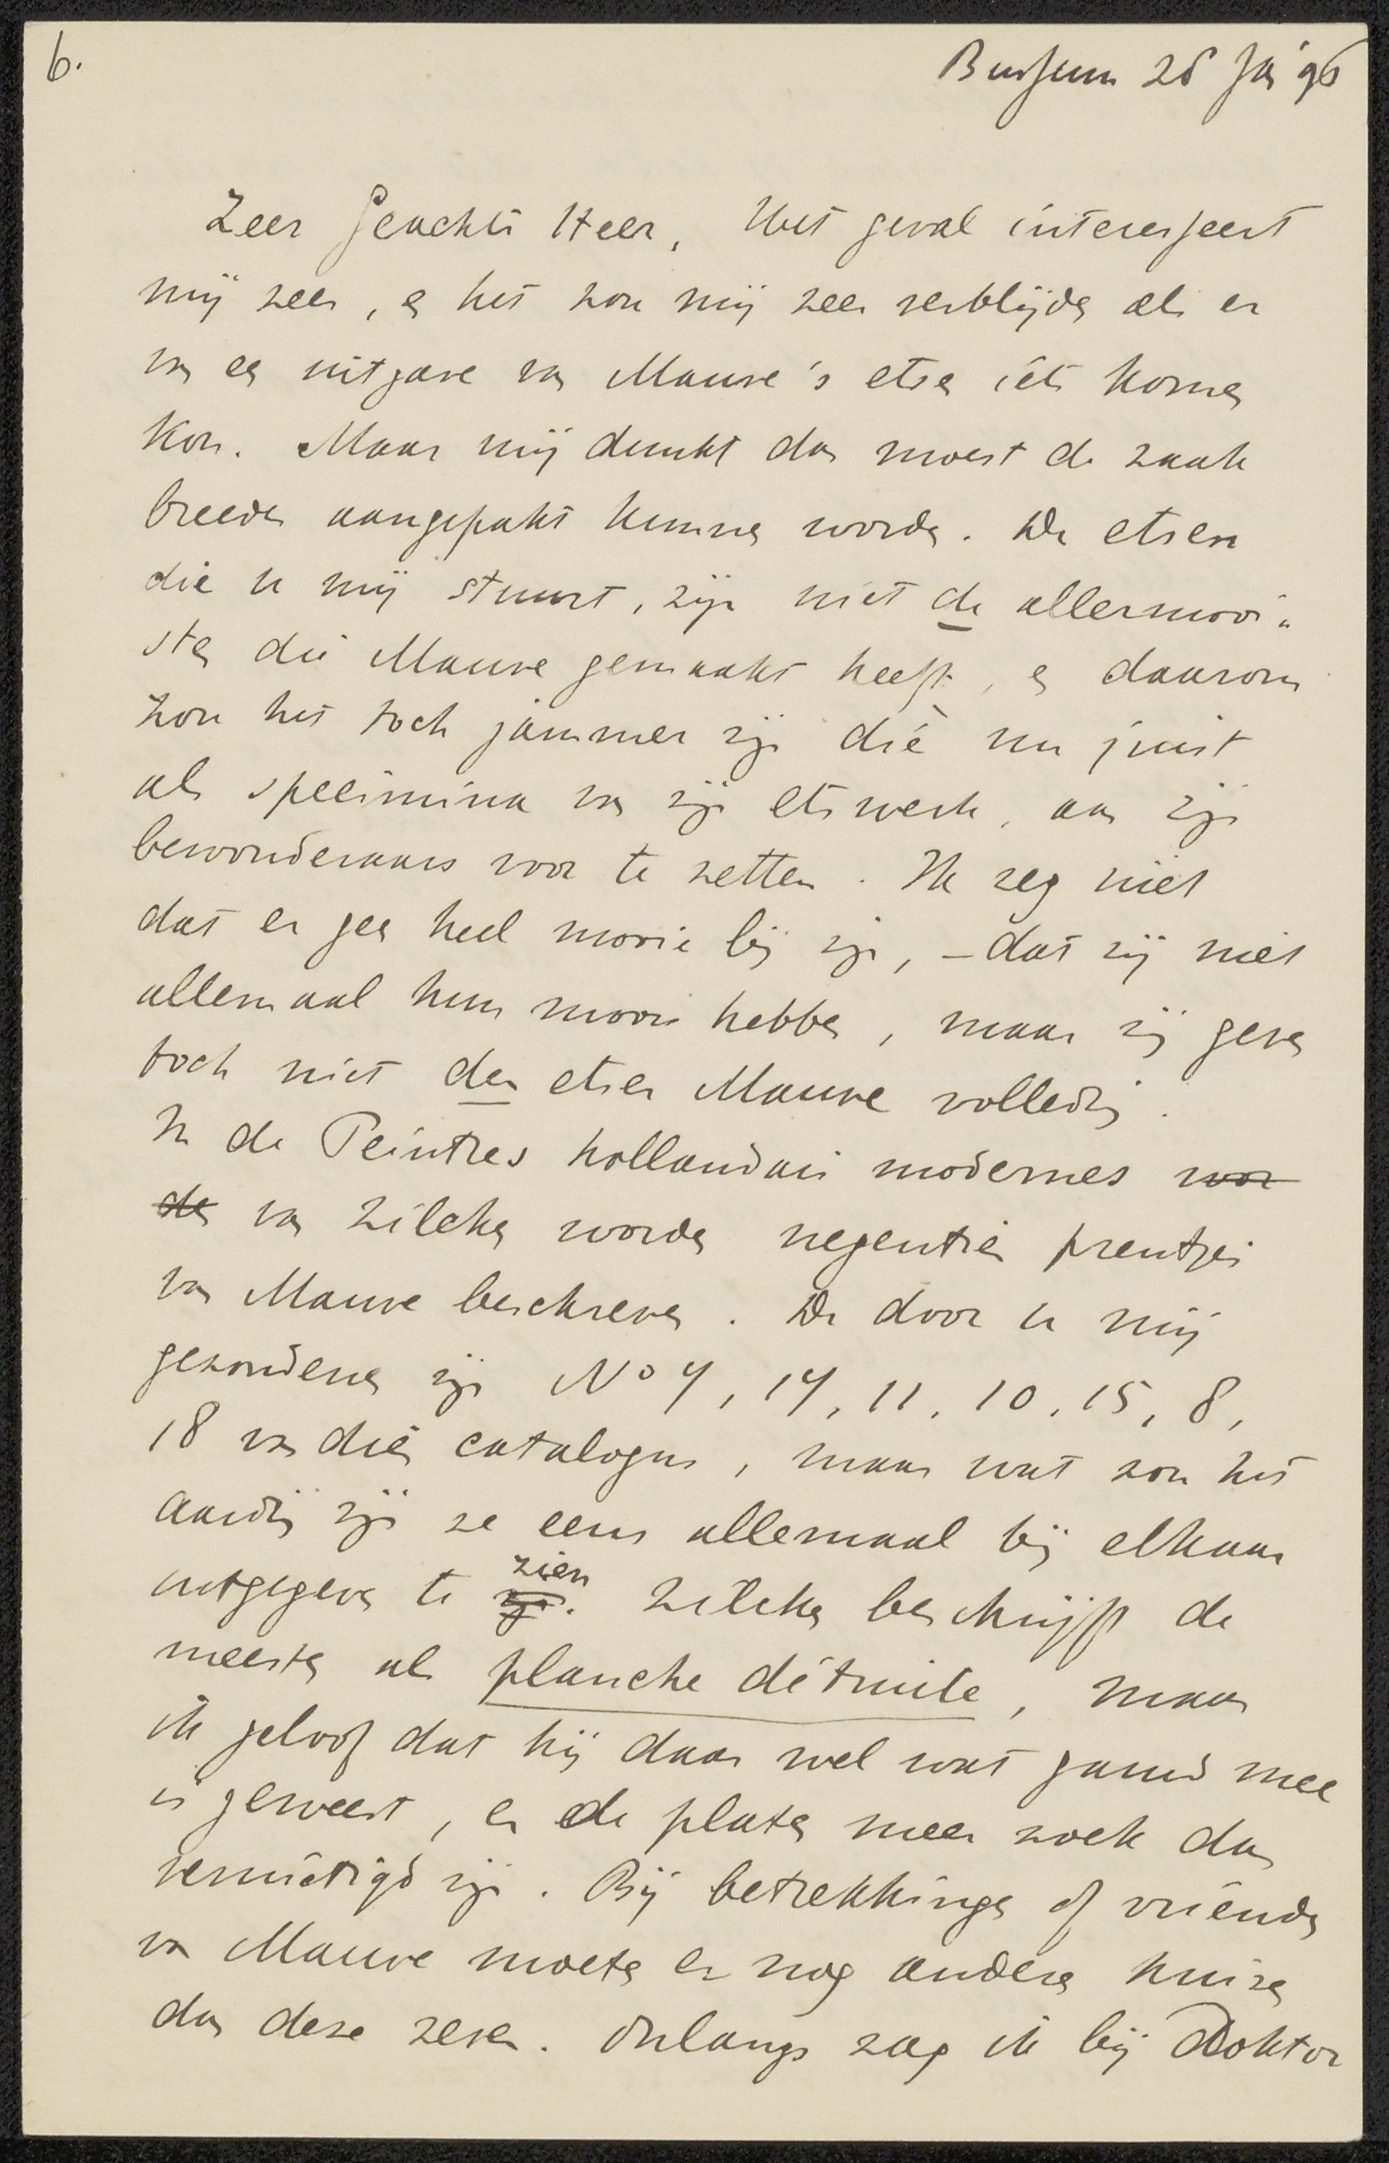 6.
Bussum 26 Ja '96
Zeer Geachte Heer, Het geval interesseert
mij zeer, en het zou mij zeer verblijden als er
van een uitgave van Mauve's etsen iets komen
kon. Maar mij dunkt dan moest de zaak
breeder aangepakt kunnen worden. De etsen
die u mij stuurt, zijn niet de allermooi-
sten die Mauve gemaakt heeft, en daarom
zou het toch jammer zijn dié nu juist
als specimina van zijn etswerk, aan zijn
bewonderaars voor te zetten. Ik zeg niet
dat er geen heel mooie bij zijn, – dat zij niet
allemaal hun moois hebben, maar zij geven
toch niet den etser Mauve volledig.
In de Peintres hollandais modernes wor
den van Zilcken worden negentien prentjes
van Mauve beschreven. De door u mij
gezondene zijn No 4, 14, 11, 10, 15, 8,
18 van dien catalogus, maar wat zou het
aardig zijn ze eens allemaal bij elkaar
uitgegeven te zijn. zien Zilcken beschrijft de
meesten als planche détruite, maar
ik geloof dat hij daar wel wat gauw mee
is geweest, en de platen meer zoek dan
vernietigd zijn. Bij betrekkingen of vrienden
van Mauve moeten er nog andere huizen
dan deze zeven. Onlangs zag ik bij Doktor